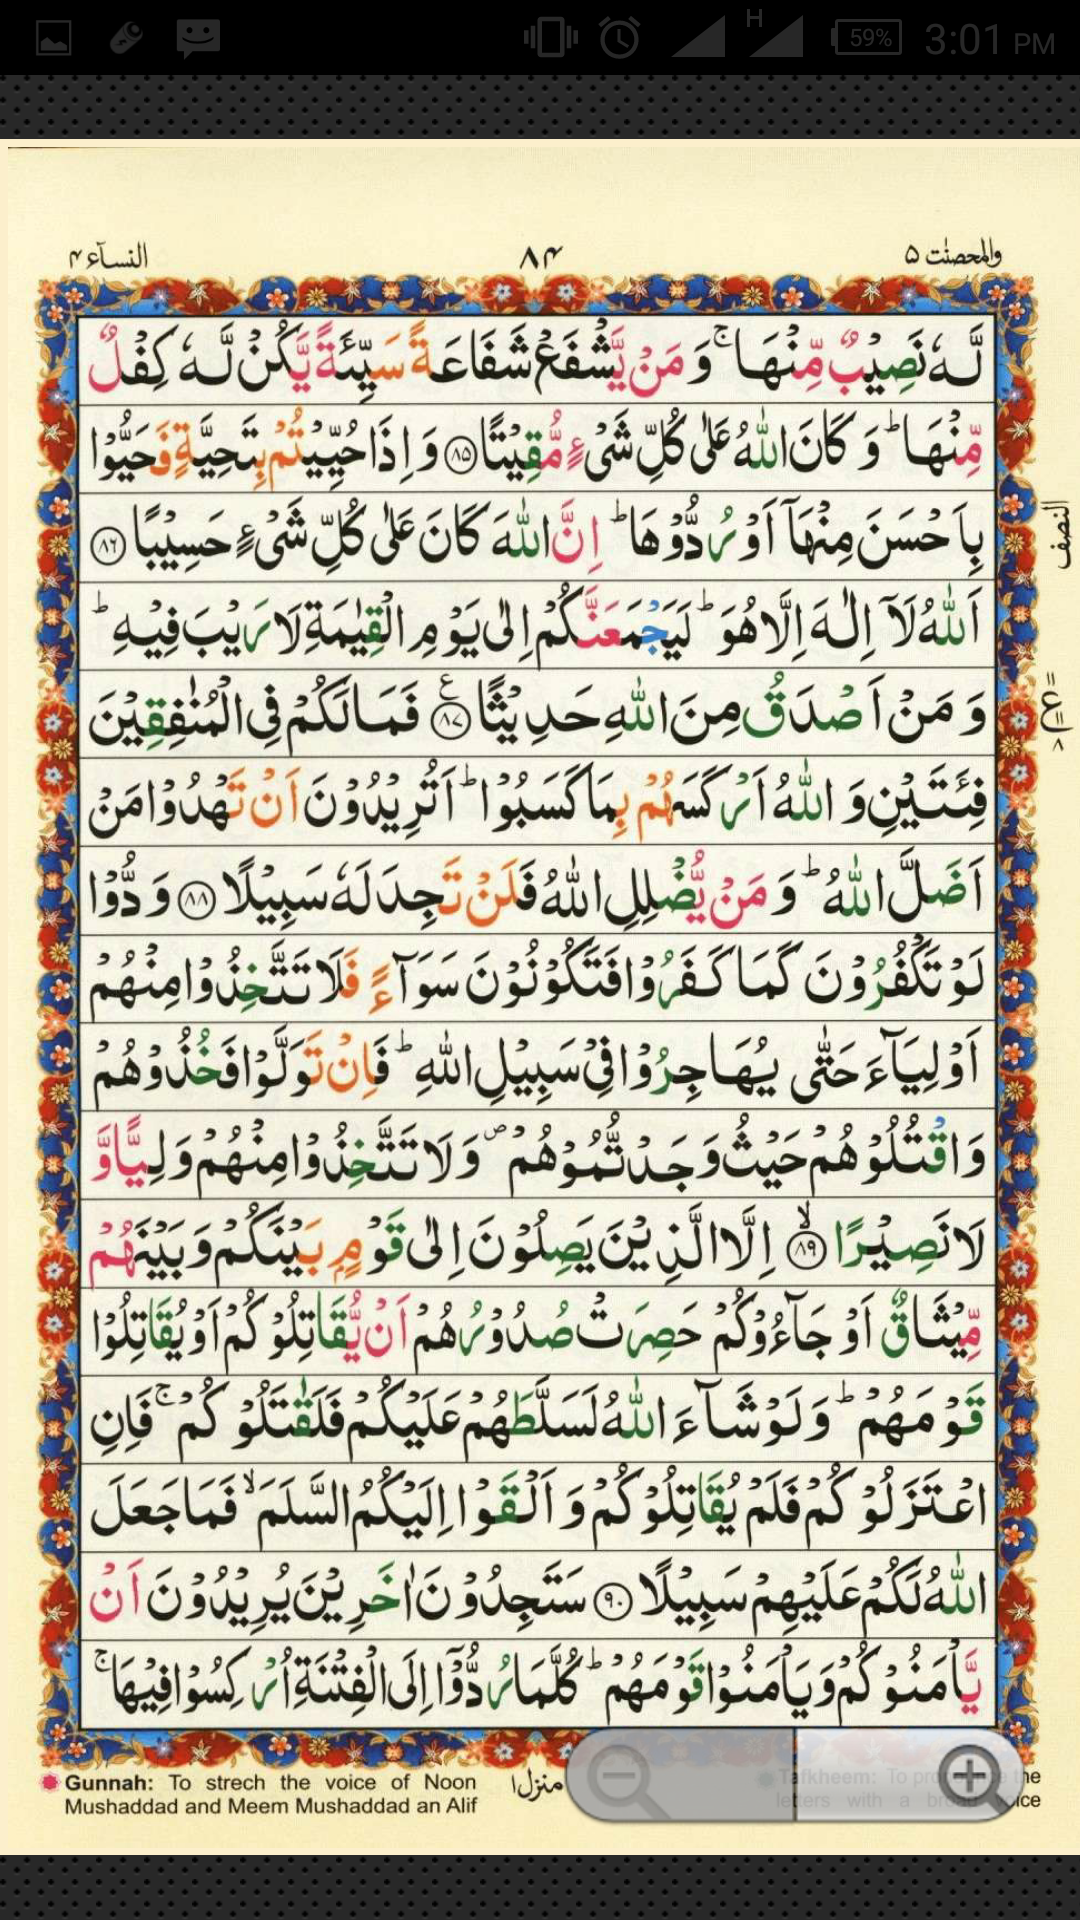 H
59%
3:01 PM
والمحصنٰت ۵
۸۴
النسآء ۴
لَّهٗ نَصِيْبٌ مِّنْهَا ۚ وَ مَنْ يَّشْفَعْ شَفَاعَةً سَيِّئَةً يَّكُنْ لَّهٗ كِفْلٌ
مِّنْهَا ؕ وَ كَانَ اللّٰهُ عَلٰى كُلِّ شَيْءٍ مُّقِيْتًا ۝۸۵ وَ اِذَا حُيِّيْتُمْ بِتَحِيَّةٍ فَحَيُّوْا
بِاَحْسَنَ مِنْهَآ اَوْ رُدُّوْهَا ؕ اِنَّ اللّٰهَ كَانَ عَلٰى كُلِّ شَيْءٍ حَسِيْبًا ۝۸۶
النصف
اَللّٰهُ لَآ اِلٰهَ اِلَّا هُوَ ؕ لَيَجْمَعَنَّكُمْ اِلٰى يَوْمِ الْقِيٰمَةِ لَا رَيْبَ فِيْهِ ؕ
وَ مَنْ اَصْدَقُ مِنَ اللّٰهِ حَدِيْثًا ۝۸۷ ع فَمَا لَكُمْ فِي الْمُنٰفِقِيْنَ
ع
۸
فِئَتَيْنِ وَ اللّٰهُ اَرْكَسَهُمْ بِمَا كَسَبُوْا ؕ اَتُرِيْدُوْنَ اَنْ تَهْدُوْا مَنْ
اَضَلَّ اللّٰهُ ؕ وَ مَنْ يُّضْلِلِ اللّٰهُ فَلَنْ تَجِدَ لَهٗ سَبِيْلًا ۝۸۸ وَدُّوْا
لَوْ تَكْفُرُوْنَ كَمَا كَفَرُوْا فَتَكُوْنُوْنَ سَوَآءً فَلَا تَتَّخِذُوْا مِنْهُمْ
اَوْلِيَآءَ حَتّٰى يُهَاجِرُوْا فِيْ سَبِيْلِ اللّٰهِ ؕ فَاِنْ تَوَلَّوْا فَخُذُوْهُمْ
وَاقْتُلُوْهُمْ حَيْثُ وَجَدْتُّمُوْهُمْ ۪ وَلَا تَتَّخِذُوْا مِنْهُمْ وَلِيًّا وَّ
لَا نَصِيْرًا ۝۸۹ ۙ اِلَّا الَّذِيْنَ يَصِلُوْنَ اِلٰى قَوْمٍ بَيْنَكُمْ وَبَيْنَهُمْ
مِّيْثَاقٌ اَوْ جَآءُوْكُمْ حَصِرَتْ صُدُوْرُهُمْ اَنْ يُّقَاتِلُوْكُمْ اَوْ يُقَاتِلُوْا
قَوْمَهُمْ ؕ وَلَوْ شَآءَ اللّٰهُ لَسَلَّطَهُمْ عَلَيْكُمْ فَلَقٰتَلُوْكُمْ ۚ فَاِنِ
اعْتَزَلُوْكُمْ فَلَمْ يُقَاتِلُوْكُمْ وَ اَلْقَوْا اِلَيْكُمُ السَّلَمَ ۙ فَمَا جَعَلَ
اللّٰهُ لَكُمْ عَلَيْهِمْ سَبِيْلًا ۝۹۰ سَتَجِدُوْنَ اٰخَرِيْنَ يُرِيْدُوْنَ اَنْ
يَّاْمَنُوْكُمْ وَيَاْمَنُوْا قَوْمَهُمْ ؕ كُلَّمَا رُدُّوْٓا اِلَى الْفِتْنَةِ اُرْكِسُوْا فِيْهَا ۚ
Gunnah: To strech the voice of Noon
Mushaddad and Meem Mushaddad an Alif
منزل ۱
Tafkheem: To pronounce the
letters with a broad voice